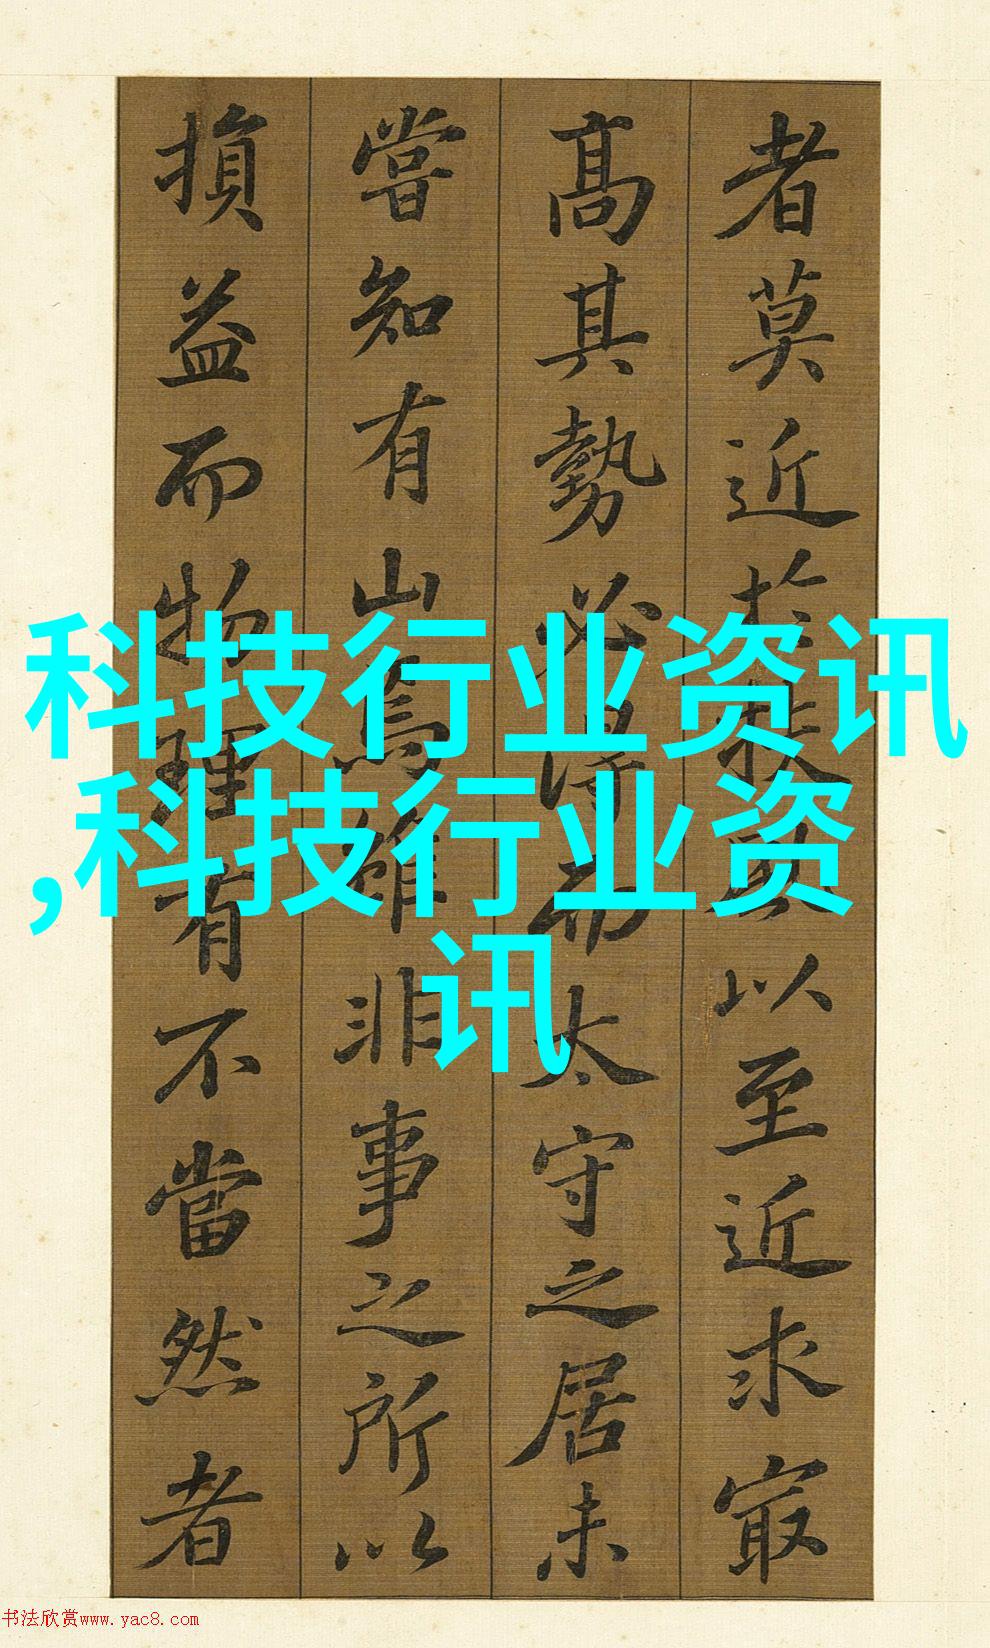 者莫近於扶風以至近求寂
高其勢必得而太守之居未
嘗知有山焉雖非事之所以
損益而物理有不當然者
科技行业资讯
,科技行业资
讯
书法欣赏www.yac8.com